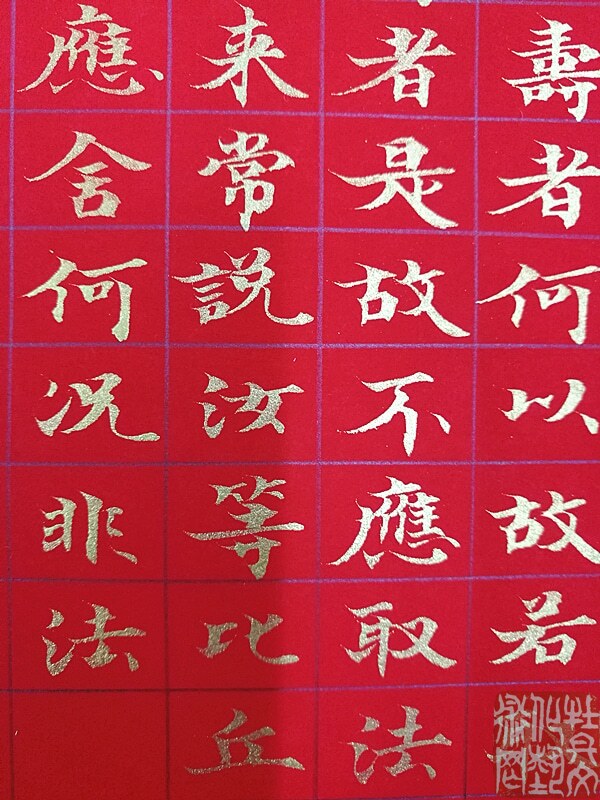 壽者何以故若
者是故不應取法
来常說汝等比丘
應舍何況非法